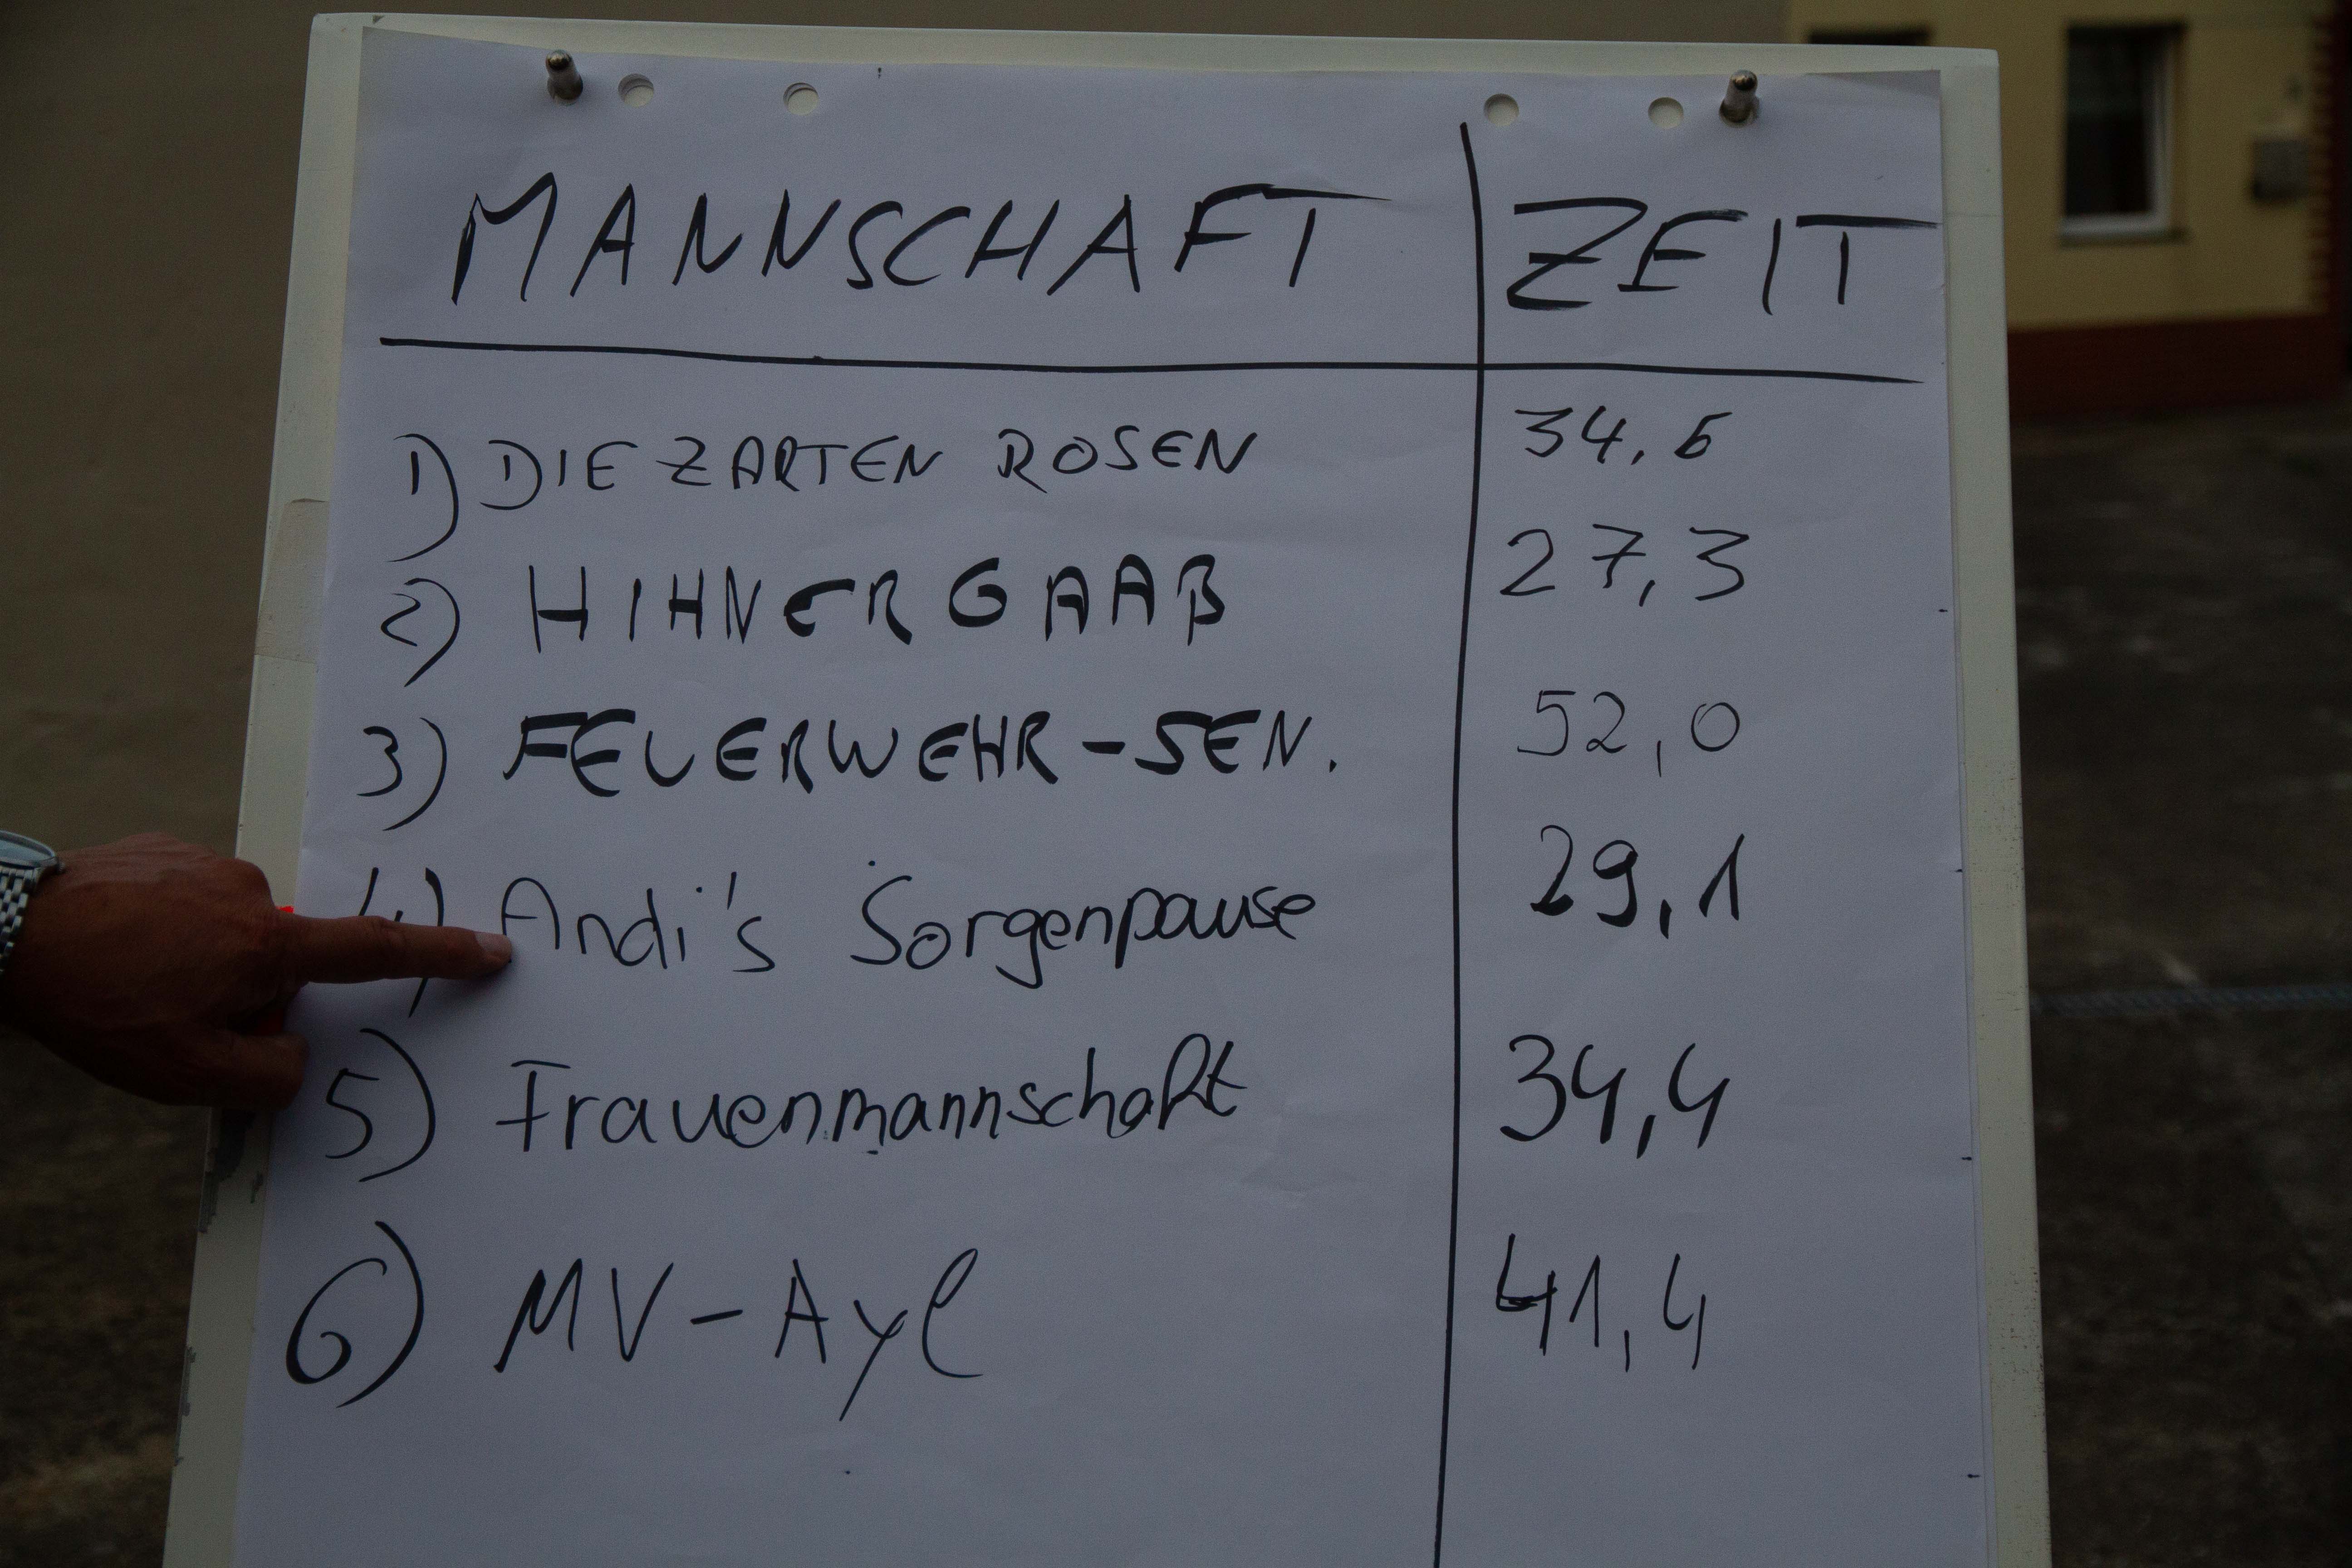 MANNSCHAFT ZEIT
1) DIE ZARTEN ROSEN 34,6
2) HIHNERGAAß 27,3
3) FEUERWEHR-SEN. 52,0
4) Andi's Sorgenpause 29,1
5) Frauenmannschaft 34,4
6) MV-Ayl 41,4